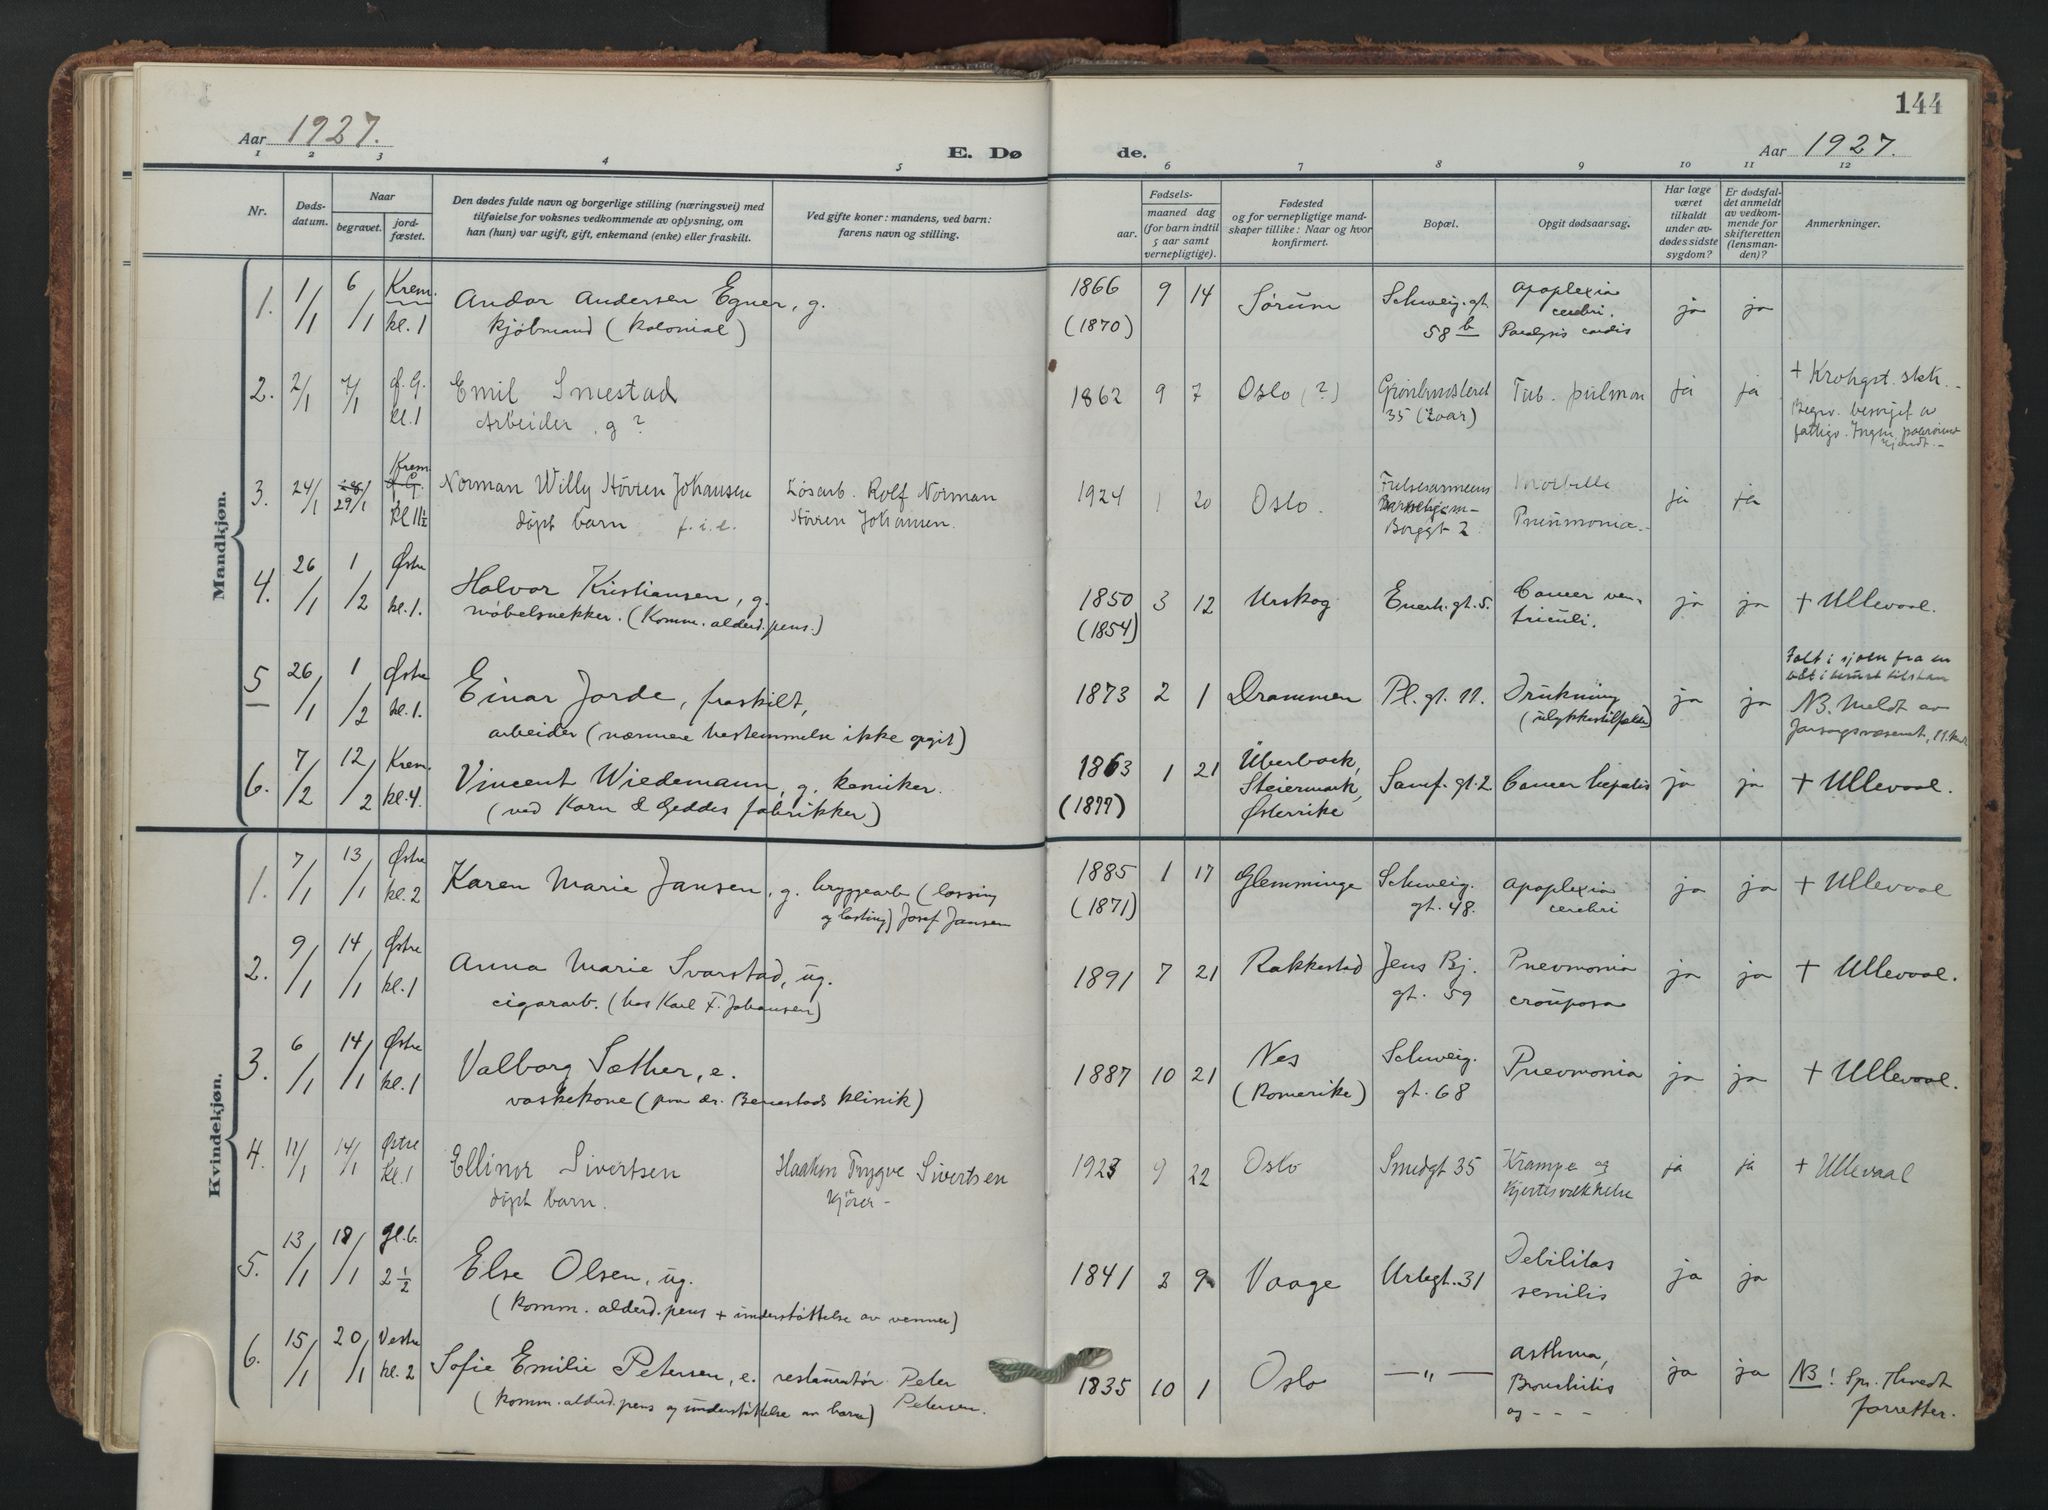 144
Aar 1927.
E. Døde.
Aar 1927.
1 2 3 4 5 6 7 8 9 10 11 12
Nr.
Døds-
datum.
Naar
begravet.
jord-
fæstet.
Den dødes fulde navn og borgerlige stilling (næringsvei) med
tilføielse for voksnes vedkommende av oplysning, om
han (hun) var ugift, gift, enkemand (enke) eller fraskilt.
Ved gifte koner: mandens, ved barn:
farens navn og stilling.
Fødsels-
aar. maaned dag
(for barn indtil
5 aar samt
vernepligtige).
Fødested
og for vernepligtige mand-
skaper tillike: Naar og hvor
konfirmert.
Bopæl.
Opgit dødsaarsag.
Har læge
været
tilkaldt
under av-
dødes sidste
sygdom?
Er dødsfal-
det anmeldt
av vedkom-
mende for
skifteretten
(lensman-
den)?
Anmerkninger.
Mandkjøn.
1. 1/1 6/1 Krem. kl. 1 Andor Andersen Egner, g.
kjøbmand (kolonial)
1866 (1870) 9 14 Sørum Schweig. gt. 58 b
Apoplexia cerebri.
Paralysis cordis
ja ja
2. 2/1 7/1 Ø. G. kl. 1 Emil Smestad
Arbeider . g ?
1862 9 7 Oslo (?) Grønlandsleret
35 (Zoar)
Tub. pulmon ja ja
+ Krohgst. skh.
Begrv. besørjet av
fattigv. Ingen paarørende
kjendt.
3. 24/1 29/1 Krem. kl 11½ Norman Willy Høvren Johansen
døpt barn f. i. e.
Løsarb. Rolf Norman
Høvren Johansen.
1924 1 20 Oslo. Frelsesarmeens
Barnehjem
Borggt 2
Morbilli
Pneumonia ja ja
4. 26/1 1/2 Østre kl. 1. Halvor Kristiansen, g.
møbelsnekker. (Komm. alderd. pens.)
1850 (1854) 3 12 Urskog Enerh. gt. 5.
Cancer ven-
triculi.
ja ja + Ullevaal.
5 26/1 1/2 Østre kl. 1. Einar Jorde, fraskilt,
arbeider (nærmere bestemmelse ikke opgit)
1873 2 1 Drammen Pl. gt. 11.
Drukning
(ulykkestilfælde)
ja ja
Falt i sjøen fra en
NB. Meldt av
6. 7/2 12/2 Krem. kl. 4. Vincent Wiedemann, g. kemiker.
(ved Korn & Geddes fabrikker)
1863 (1877) 1 21 Überback,
Steiermark,
Østerrike
Samf. gt. 2 Cancer hepatis ja ja + Ullevaal.
Kvindekjøn.
1. 7/1 13/1 Østre kl. 2 Karen Marie Jansen, g. bryggearb (lossing
og lasting) Josef Jansen
1885 (1871) 1 17 Glemminge Schweig.
gt. 48.
Apoplexia
cerebri
ja ja + Ullevaal
2. 9/1 14/1 Østre kl. 1 Anna Marie Svarstad, ug.
cigararb. (hos Karl F. Johansen)
1891 7 21 Rakkestad Jens Bj.
gt. 59
Pnevmonia
crouposa
ja ja + Ullevaal.
3. 6/1 14/1 Østre kl. 1 Valborg Sæther, e.
vaskekone (paa dr. Benestads klinik)
1887 10 21 Nes
(Romerike)
Schweig.
gt. 68
Pnevmonia ja ja + Ullevaal.
4. 11/1 14/1 Østre kl. 1 Ellinor Sivertsen
døpt barn.
Haakon Trygve Sivertsen
kjører
1923 9 22 Oslo Smedgt 35 Krampe og
hjertesvækkelse
ja ja + Ullevaal
5. 13/1 18/1 Gl. b. 2 ½ Else Olsen, ug.
(komm. alderd. pens + understøttelse av venner)
1841 2 9 Vaage Urtegt. 31 Debilitas
senilis
ja ja
6. 15/1 20/1 Vestre kl. 2 Sofie Emilie Petersen, e. restauratør Peter
Petersen.
(komm. alderd. pens og understøttelse av barn)
1835 10 1 Oslo — „ — Asthma,
Bronchitis
og - - -
ja ja NB! Spr. Thvedt
forretter.